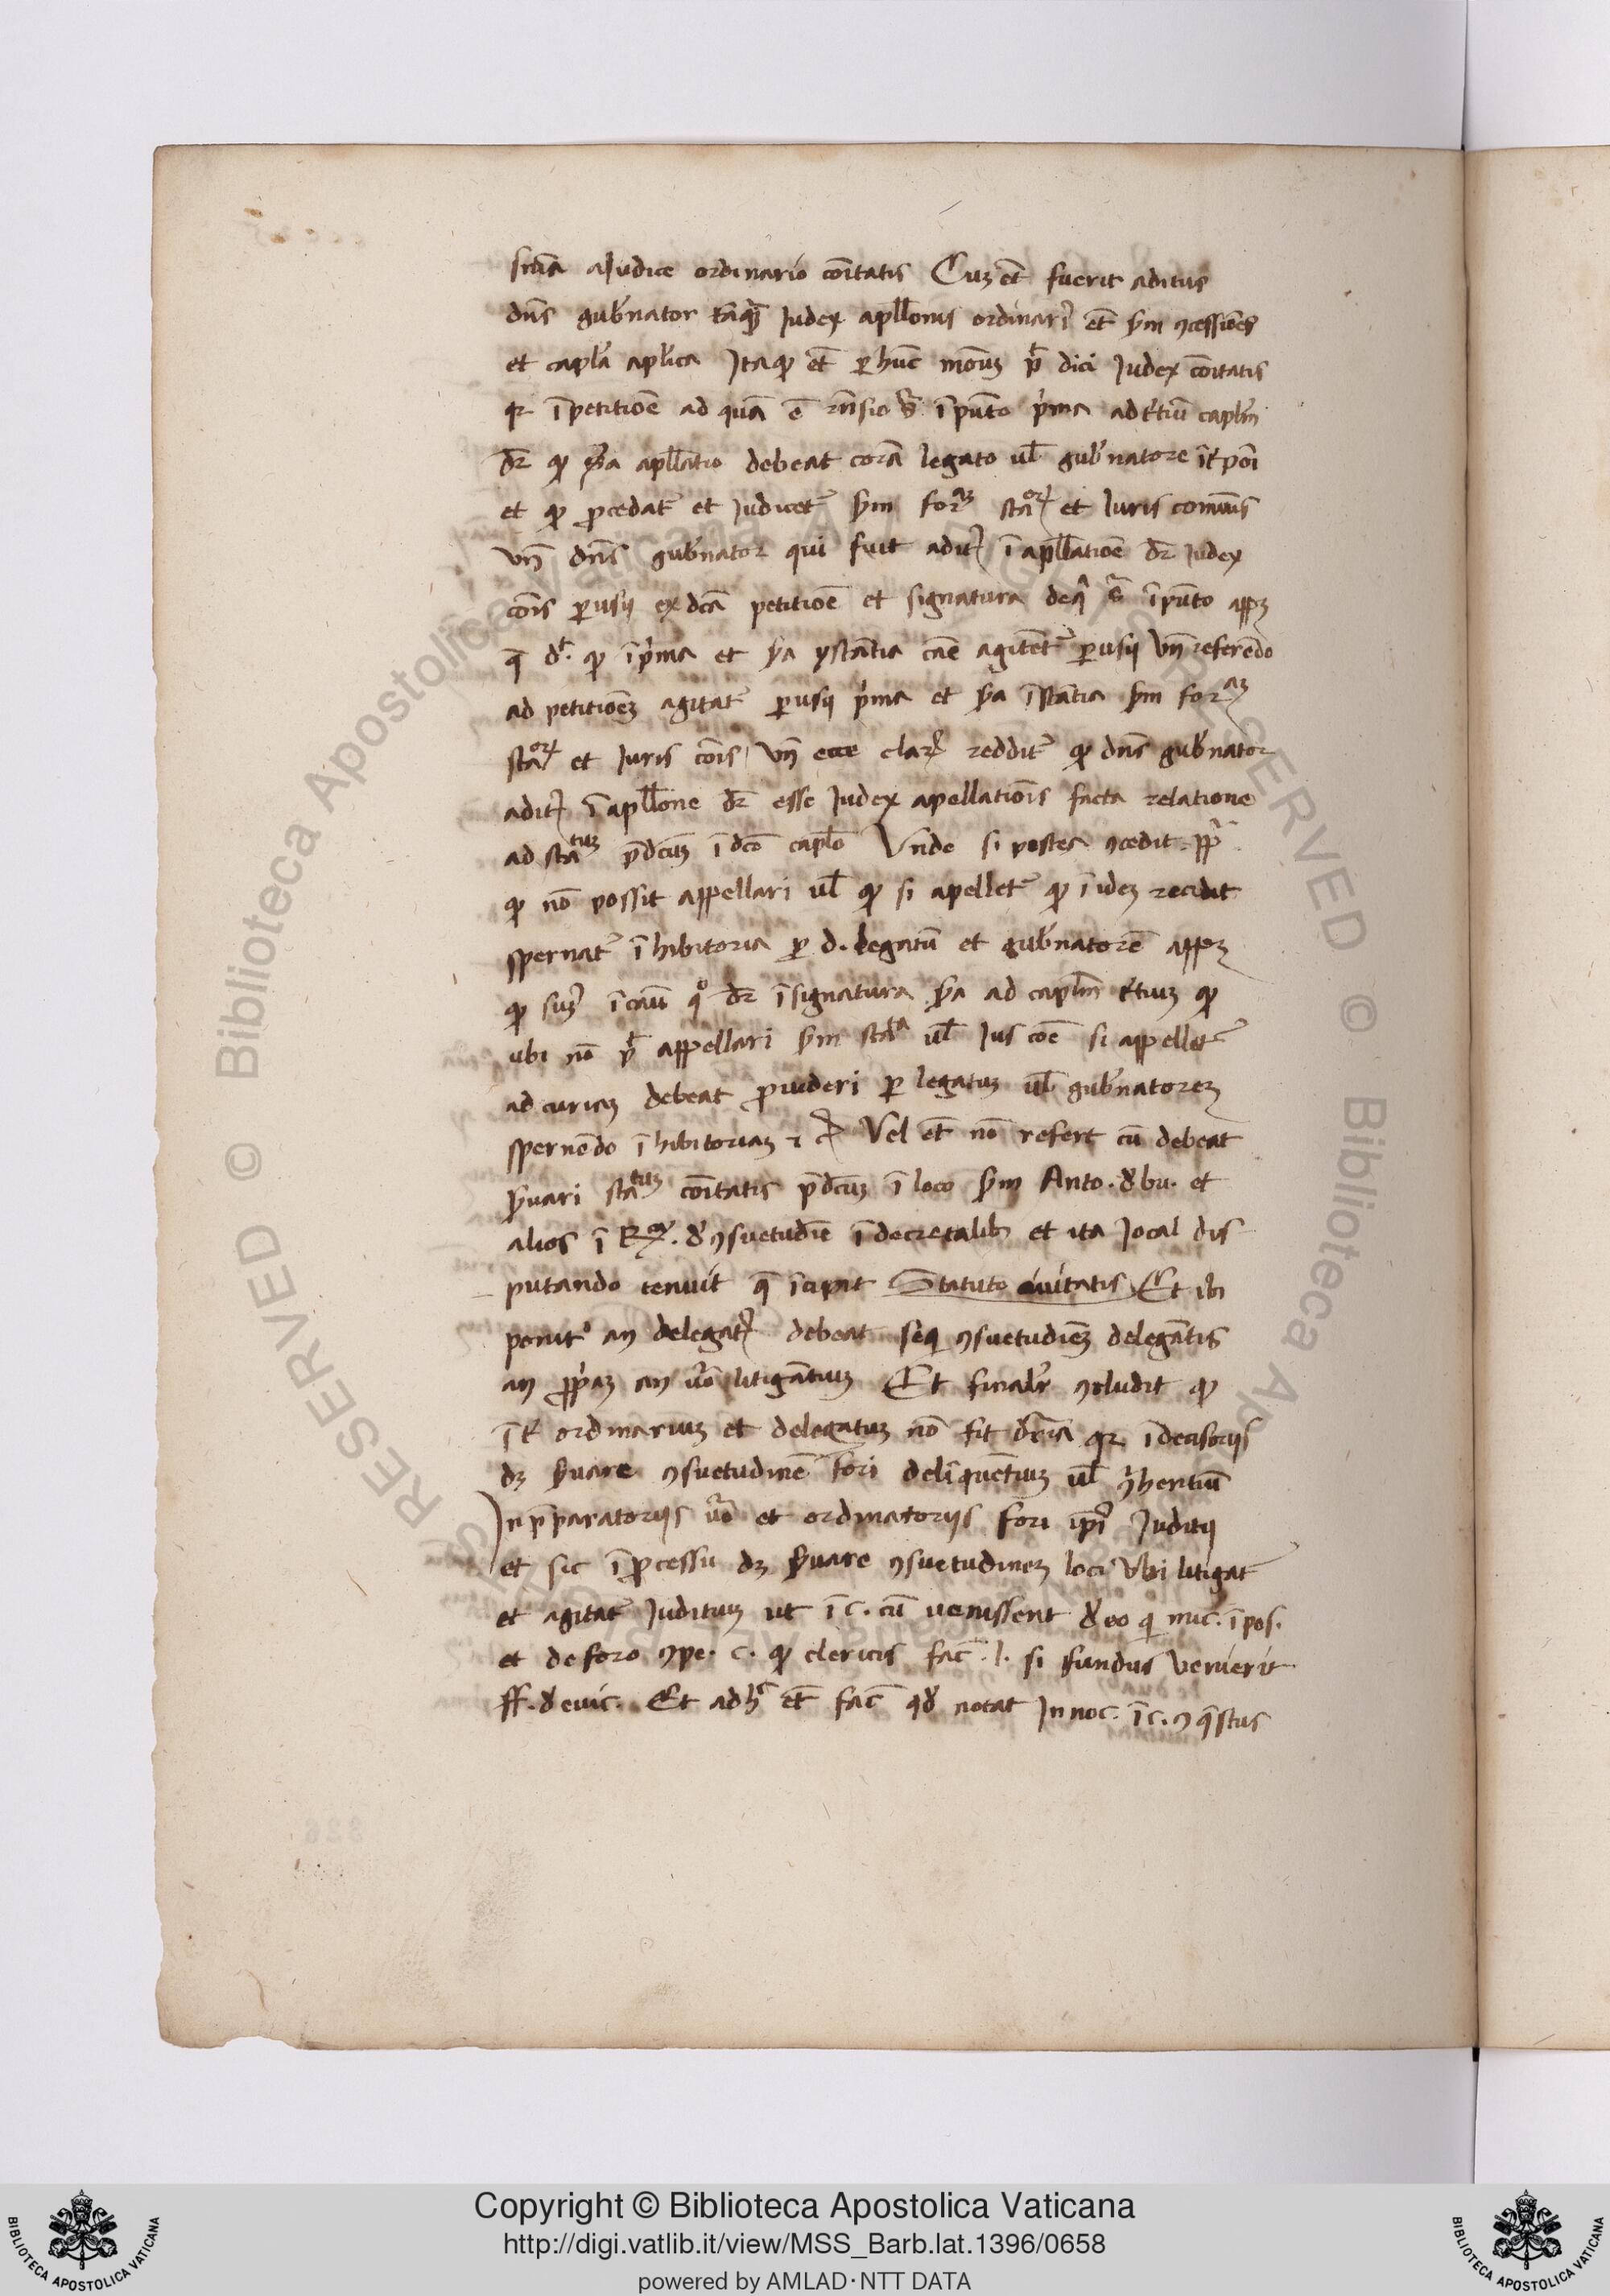 snīa a Judice ordinario cōitatis Cuz et̄ fuerit aditus
dn̄s gub̄nator tāq̄ȝ Judex apll̄onis ordinari9 et̄ s̄m ꝯcessiōes
et capl̄a apl̄ica Itaqꝫ et̄ ꝑ hūc modū pt̄ dici Judex cōitatis
qꝛ ī petitiōe ad quā ē rn̄sio ī pūto p̄ma ad t̄tiū capl̄m
dr̄ ꝙ apll̄atio debeat corā legato ul̄ gub̄natore īt̄poni
et ꝙ ꝓcedat᷑ et Judicet᷑ s̄m forᵃᵐ staᵒꝝ et Juris cōmunis
vn̄ dn̄s gub̄nator qui fuit adit9 ī apll̄atiōe dr̄ Judex
cōis ꝑusij ex dc̄a petitiōe et signatura de q̄ ī pūto
q̄ ꝙ ī p̄ma et s̄a ꝯstātia cāe agitent᷑ ꝑusij vn̄ referēdo
ad petitiōeȝ agitat᷑ ꝑusij p̄ma et s̄a īstātia s̄m forᵃᵐ
staᵒꝝ et Juris cōis vn̄ ecce clar9 reddit᷑ ꝙ dn̄s gub̄nator
adit9 ī apll̄one dr̄ esse Judex apellatiōis facta relatione
ad staᵗᵘᵐ p̄dc̄um ī dc̄o capl̄o Vnde si postea ꝯcedit pp̄
ꝙ nō possit appellari ul̄ ꝙ si apellet᷑ ꝙ īidem recidit
spernat᷑ īhibitoria ꝑ d. legatū et gub̄natorē
ꝙ ī cāu q̊ dr̄ ī signatura s̄a ad capl̄m t̄tium ꝙ
ubi nō pt̄ appellari s̄m staᵗᵃ ul̄ Jus cōe si appellet᷑
ad curiaȝ debeat ꝓuideri ꝑ legatuȝ ul̄ gub̄natoreȝ
spernēdo īhibitoriaȝ ⁊ c̄ Vel et̄ nō refert cū debeat
s̄uari staᵗᵘᵐ cōitatis p̄dc̄um ī loco s̄m Anto. d̄ bu. et
alios ī Rᶜᵃ. d̄ ꝯsuetudīe ī decretalib9 et ita Jo cal dis
putando tenuit q̄ īcipit Statuto ciuitatis Et ib
ponit᷑ an delegat9 debeat seq̄ ꝯsuetudīeȝ delegātis
an ꝓp̄aȝ an v̄o litigātium Et finalr̄ ꝯcludit ꝙ
īt̄ ordinarium et delegatum nō fit dr̄ia qꝛ ī decisorijs
dȝ s̄uare ꝯsuetudinē fori delīquētium ul̄ ꝯ̄hentiū
In p̄paratorijs v̄o et ordinatorijs fori ip̄i9 Juditij
et sic ī ꝓcessu dȝ s̄uare ꝯsuetudinem loci Vbi litigat᷑
et agitat᷑ Juditium ut ī c. cū uenissent d̄ eo q̄ mic. ī pos.
et de foro ꝯpe. c. ꝙ clericis fac̄. l. si fundus venierit
ff. d̄ euic. Et ad h̄ et̄ fac̄ qd̄ notat Innoc. ī c. ꝯq̄stus
Copyright © Biblioteca Apostolica Vaticana
http://digi.vatlib.it/view/MSS_Barb.lat.1396/0658
powered by AMLAD·NTT DATA